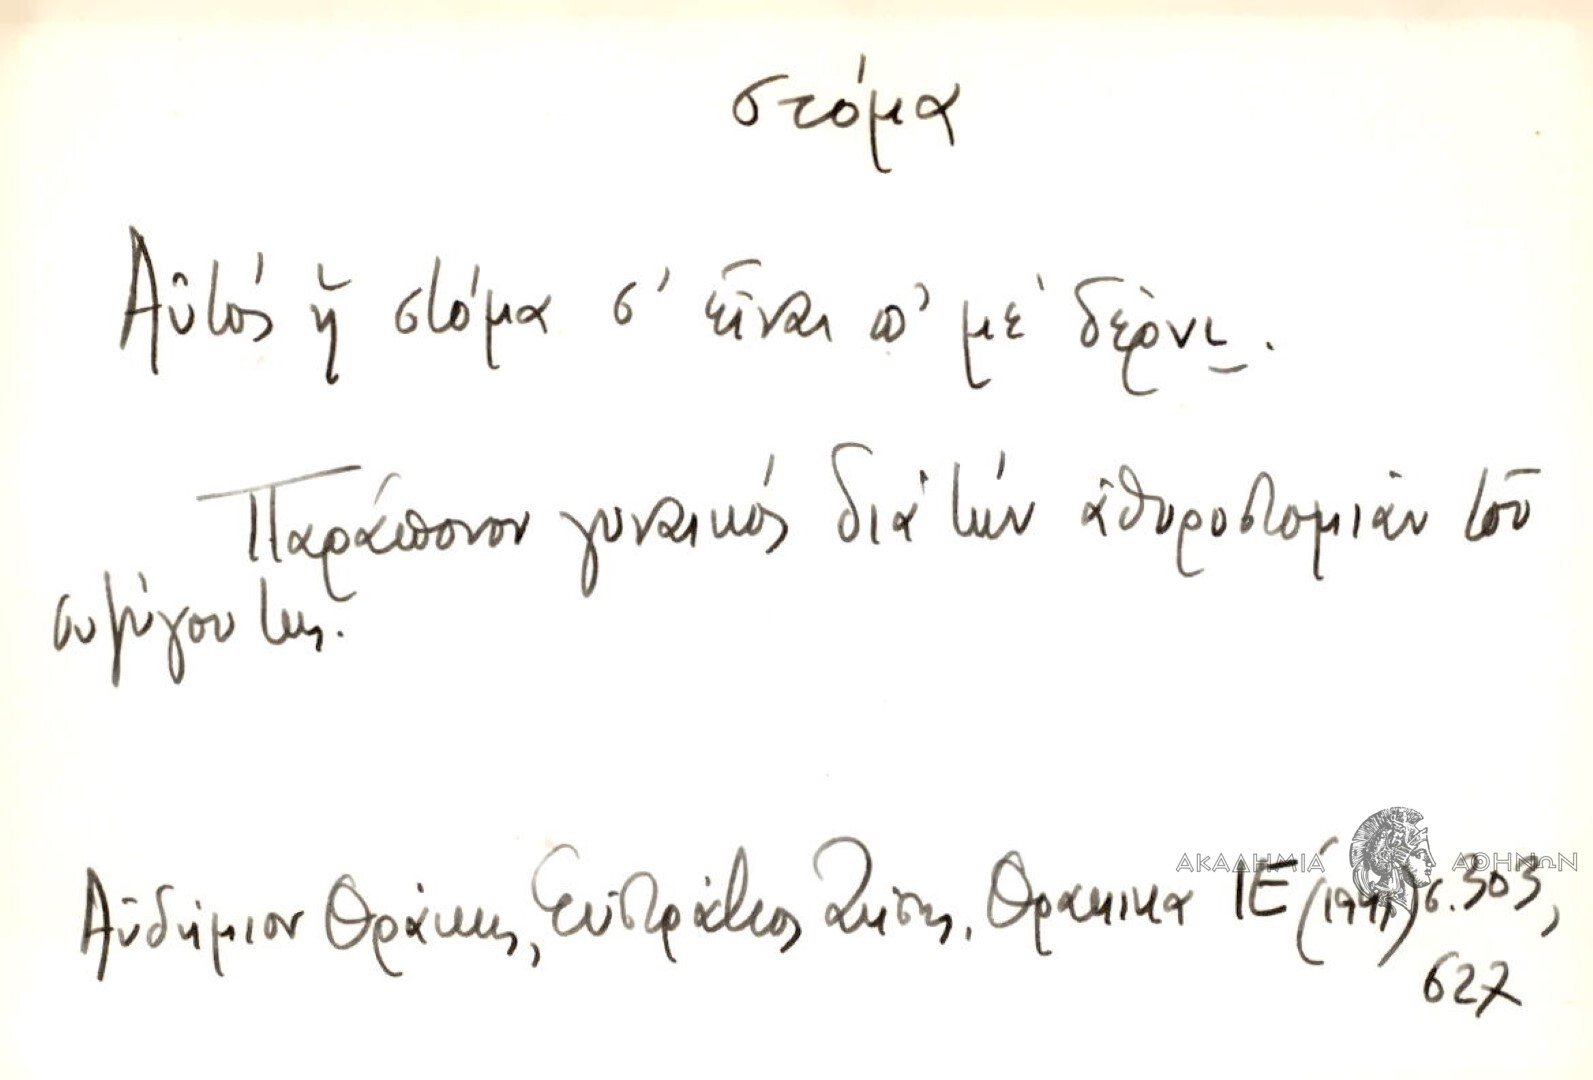 στόμα
Αὐτός ἡ στόμα σ' εἶναι π' μέ δέρνι.
Παράπονον γυναικός διά τήν ἀθυροστομίαν τοῦ
συζύγου της.
Αὐδήμιον Θράκης, Εὐστράτιος Ζήσης, Θρακικά ΙΕ (1941) σ. 303,
627
ΑΚΑΔΗΜΙΑ ΑΘΗΝΩΝ